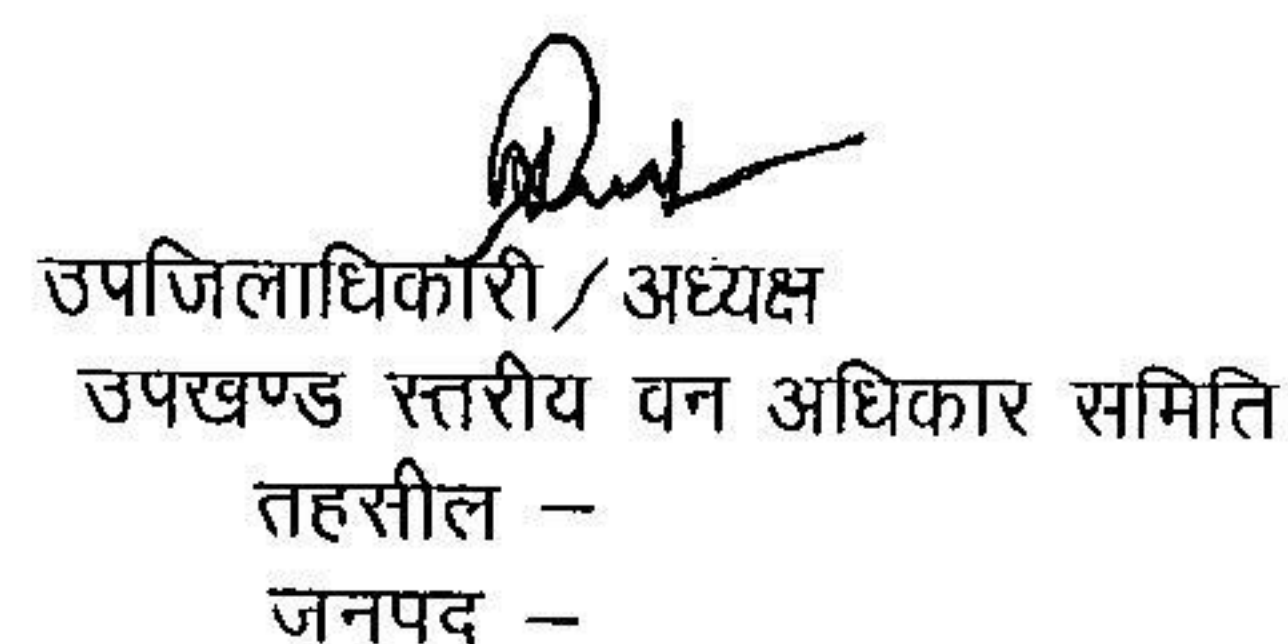 उपजिलाधिकारी / अध्यक्ष
उपखण्ड स्तरीय वन अधिकार समिति
तहसील –
जनपद –